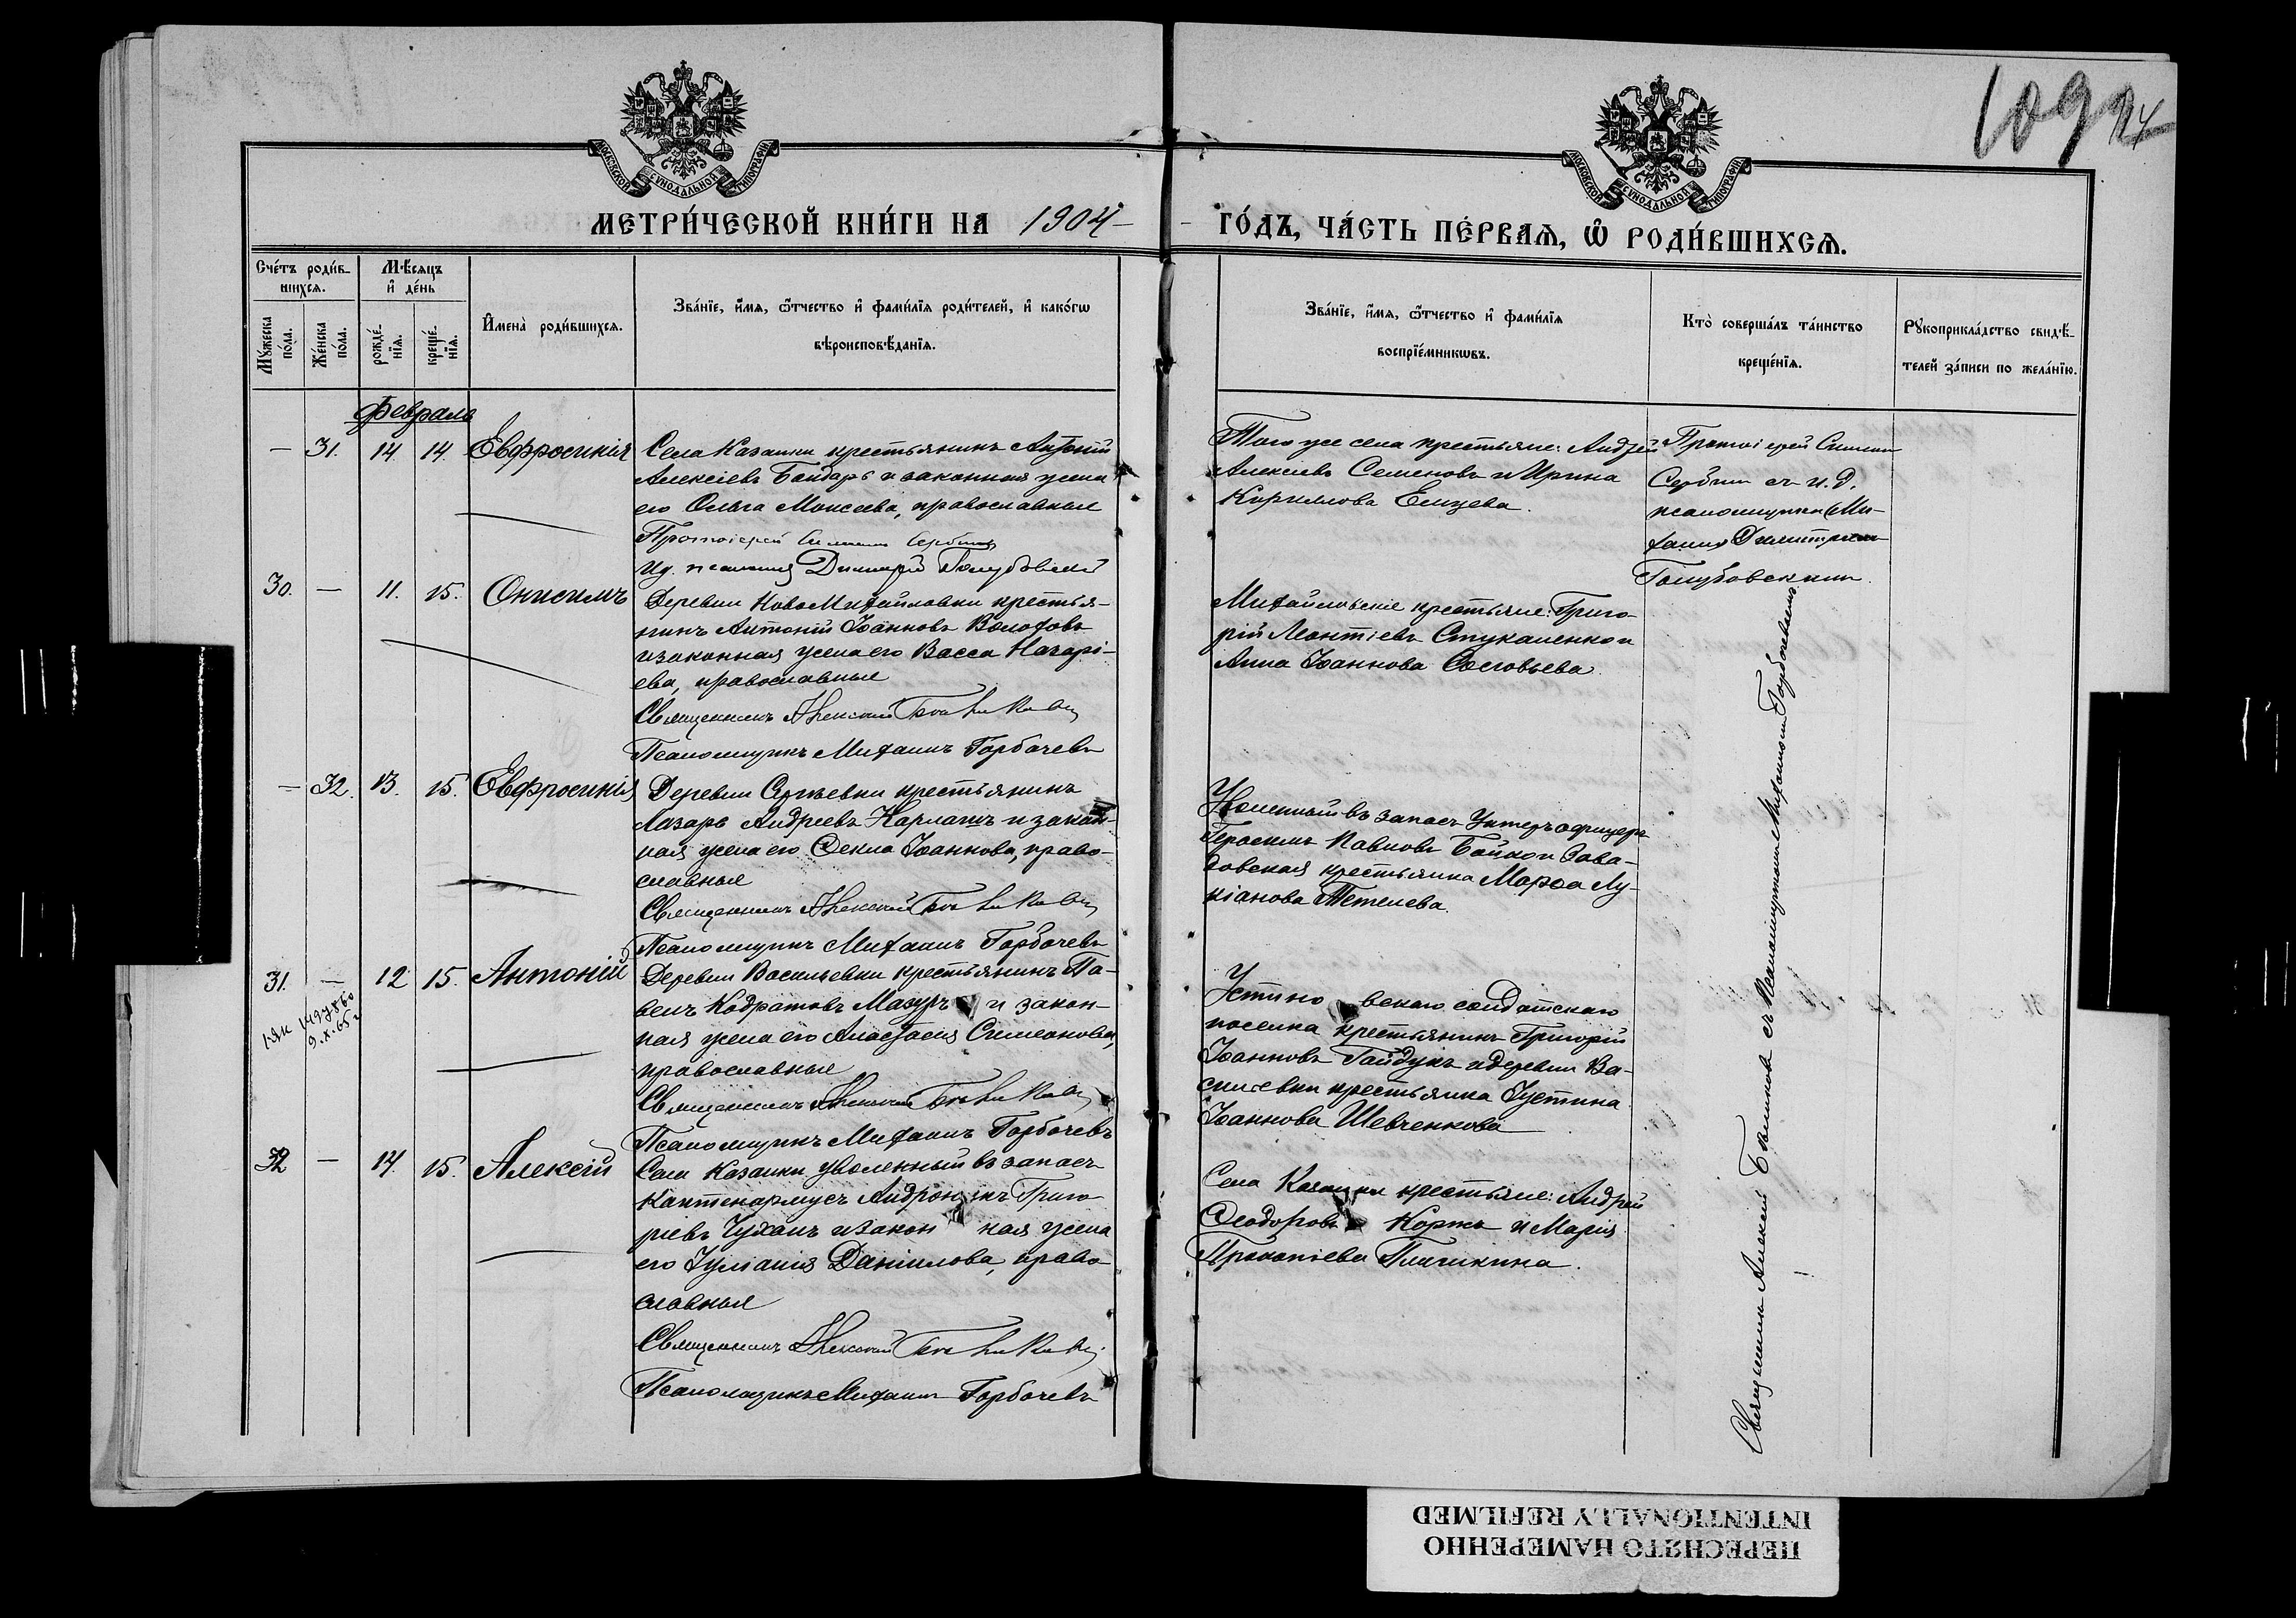 МОСКОВСКОЙ СѴНОДАЛЬНОЙ ТИПОГРАФІИ
МОСКОВСКОЙ СѴНОДАЛЬНОЙ ТИПОГРАФІИ
109
24
МЕТРИ́ЧЕСКОЙ КНИ́ГИ НА 1904 ГО́ДЪ, ЧА́СТЬ ПЕ́РВАѦ, Ѿ РОДИ́ВШИХСѦ.
Сче́тъ роди́в-
шихсѧ.
Мужеска по́ла.
Же́нска по́ла.
Мѣ́сѧцъ и҆ де́нь
рожде́-
нїѧ.
креще́-
нїѧ.
И҆мена̀ роди́вшихсѧ.
Зва́нїе, и҆́мѧ, ѻ҆́тчество и҆ фами́лїѧ роди́телей, и҆ како́гѡ
вѣроисповѣ́данїѧ.
Зва́нїе, и҆́мѧ, ѻ҆́тчество и҆ фами́лїѧ
воспрїе́мникѡвъ.
Кто̀ соверша́лъ та́инство
креще́нїѧ.
Рукоприкла́дство свидѣ́-
телей за́писи по жела́нїю.
Февраль
— 31. 14. 14. Евфросинія
Села Казанки крестьянинъ Антоній
Алексіевъ Бондарь и законная жена
его Ольга Моисеева, православные
Протоіерей
Димитрій Голубовскій
Того же села крестьяне: Андрей
Алексіевъ Семеновъ и Ирина
Кириллова Елцева.
Протоіерей
съ и. д.
псаломщика
Димитріемъ
Голубовскимъ.
30. — 11. 15. Онисимъ
Деревни НовоМихайловки крестья-
нинъ Антоній Іоанновъ Волоховъ
и законная жена его Васса Назарі-
ева, православные
Священникъ Алексій
Псаломщикъ Михаилъ Горбачевъ
Михайловскіе крестьяне: Григо-
рій Леонтіевъ Стукаленко и
Анна Іоаннова Соловьева.
— 32. 13. 15. Евфросинія
Деревни Сергѣевки крестьянинъ
Лазарь Андреевъ Карлашъ и закон-
ная жена его Ѳекла Іоаннова, право-
славные
Священникъ Алексій
Псаломщикъ Михаилъ Горбачевъ
Уволенный въ запасъ Унтеръ офицеръ
Герасимъ Павловъ Бойко и Сава-
совская крестьянка Марѳа Лу-
кіанова Тетелева.
31. — 12 15. Антоній
9.X.65 г
Деревни Васильевки крестьянинъ Па-
велъ Кодратовъ Мазуръ и закон-
ная жена его Анастасія Симеонова,
православные
Священникъ Алексій
Псаломщикъ Михаилъ Горбачевъ
Устиновскаго солдатскаго
поселка крестьянинъ Григорій
Іоанновъ Гайдукъ и деревни Ва-
сильевки крестьянка Іустина
Іоаннова Шевченкова
32 — 14. 15. Алексій
Села Казанки уволенный въ запасъ
Каптенармусъ Андроникъ Григо-
ріевъ Чуханъ и законная жена
его Іуліанія Даніилова, право-
славные
Священникъ Алексій
Псаломщикъ Михаилъ Горбачевъ
Села Казанки крестьяне: Андрей
Ѳеодоровъ Коржъ и Марія
Прокопіева Плачикина.
Священникъ Алексій съ Псаломщикомъ Михаиломъ Горбачевымъ
ПЕРЕСНЯТО НАМЕРЕННО
INTENTIONALLY REFILMED